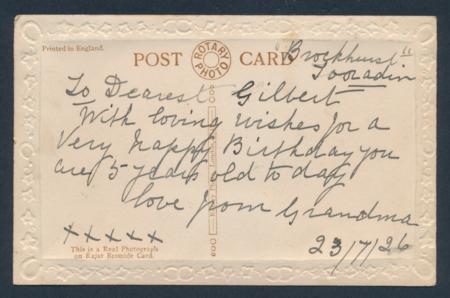 Printed in England.
POST CARD
ROTARY PHOTO
"Brockhurst"
Tooradin
To Dearest Gilbert
With loving wishes for a
Very happy Birthday you
are 5 years old to day
love from Grandma
x x x x x
23/7/26
This is a Real Photograph
on Kajar Bromide Card.